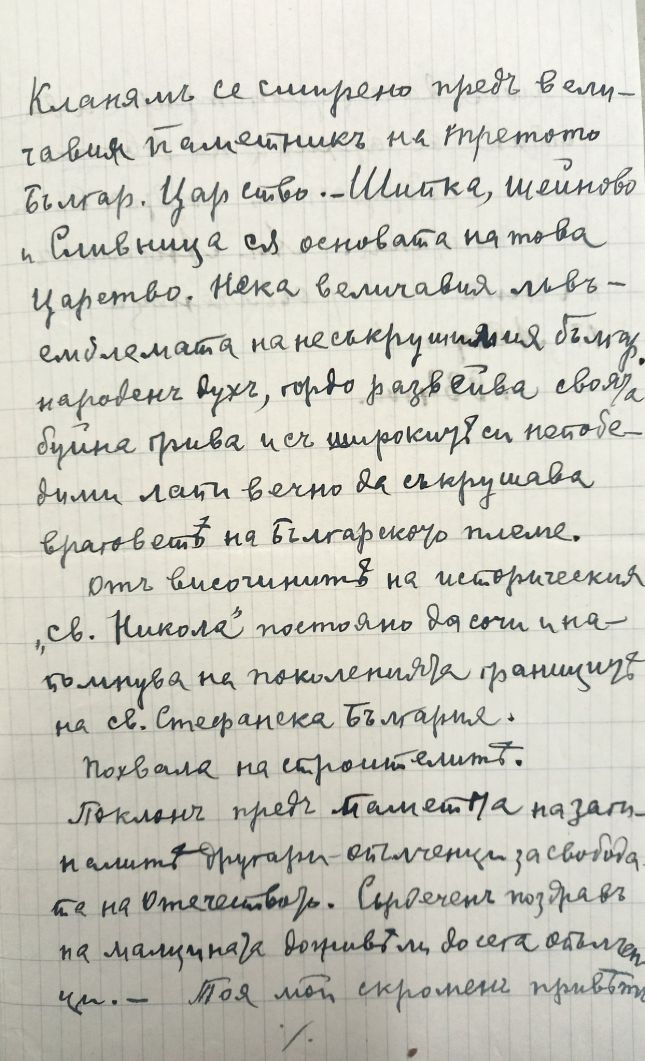 Кланямъ се смирено предъ вели-
чавия паметникъ на третото
Българ. Царство. – Шипка, Шейново
и Сливница ся основата на това
Царство. Нека величавия лъвъ –
емблемата на несъкрушимия българ.
народенъ духъ, гордо развейва своята
буйна грива и съ широкитѣ си непобе-
дими лапи вечно да съкрушава
враговетѣ на Българското племе.
Отъ височинитѣ на историческия
„св. Никола" постояно да сочи и на-
помнува на поколенията границитѣ
на св. Стефанска България.
Похвала на строителитѣ.
Поклонъ предъ паметьта на заги-
налитѣ другари – опълченци за свобода-
та на Отечеството. Сърдеченъ поздравъ
на малцината доживѣли до сега опълчен
ци. – Тоя мой скроменъ привѣтъ
./.